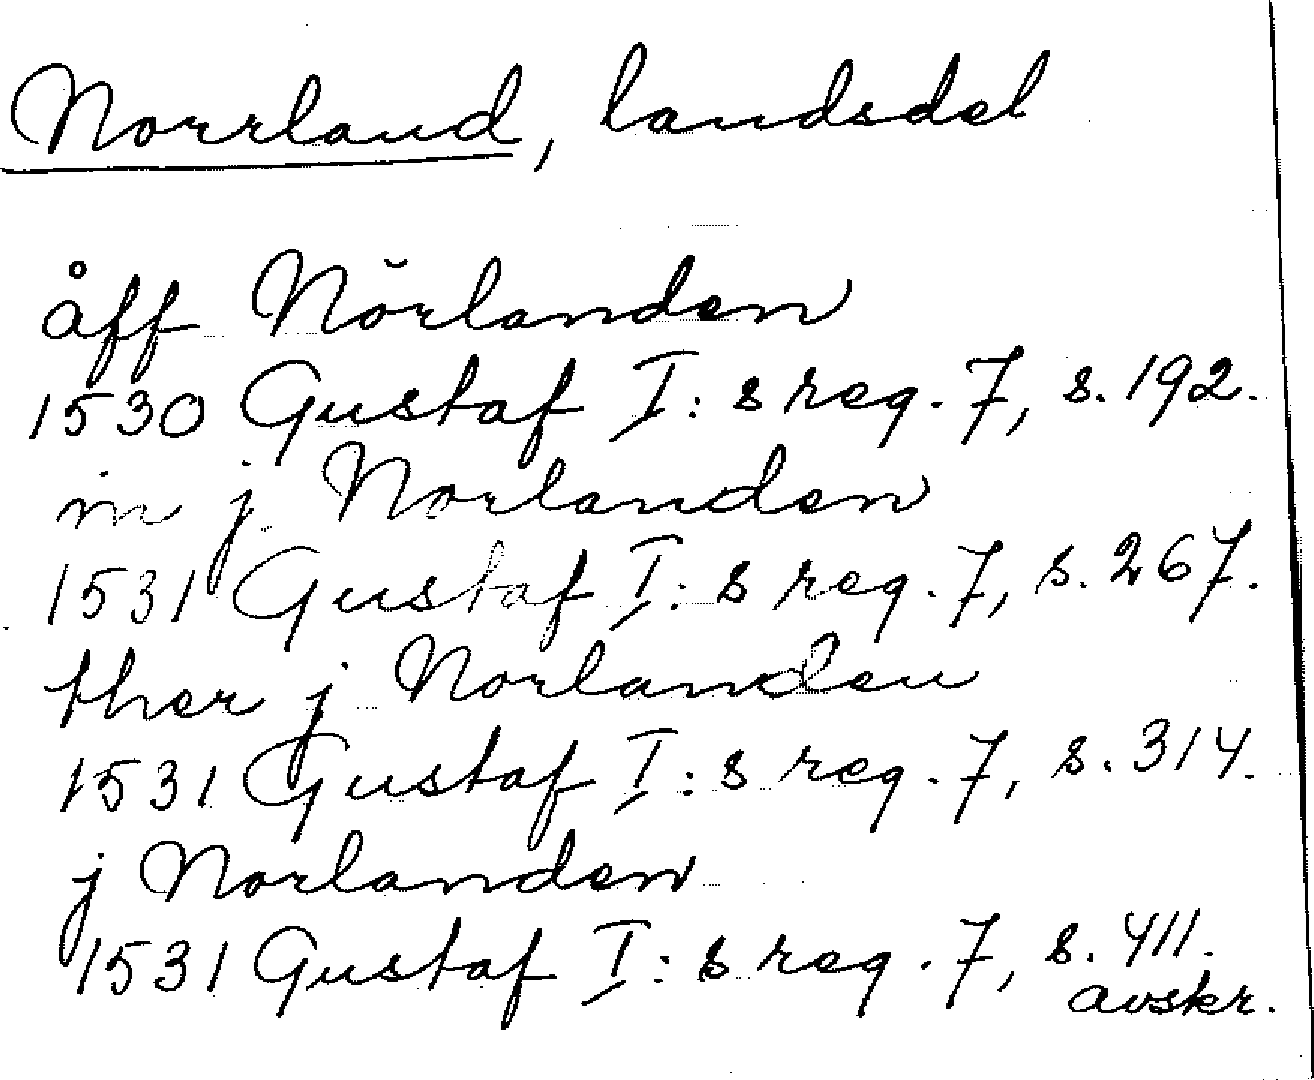 Norrland, landsdel
åff Nŏrlanden
1530 Gustaf I:s reg. 7, s. 192.
in j Norlanden
1531 Gustaf I:s reg. 7, s. 267.
ther j Norlanden
1531 Gustaf I:s reg. 7, s. 314.
j Norlanden
1531 Gustaf I:s reg. 7, s. 411.
avskr.